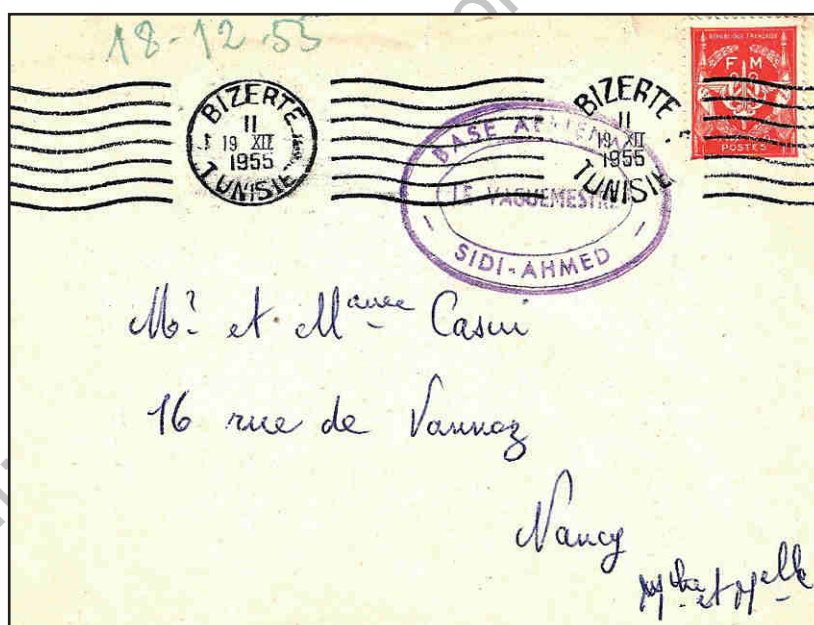 18-12-55
BIZERTE
11
19 XII
1955
TUNISIE
BIZERTE
11
19 XII
1955
TUNISIE
RÉPUBLIQUE FRANÇAISE
F M
POSTES
BASE AERIENNE
LE VAGUEMESTRE
- SIDI-AHMED -
Mr et Mme
16 rue de
Nancy